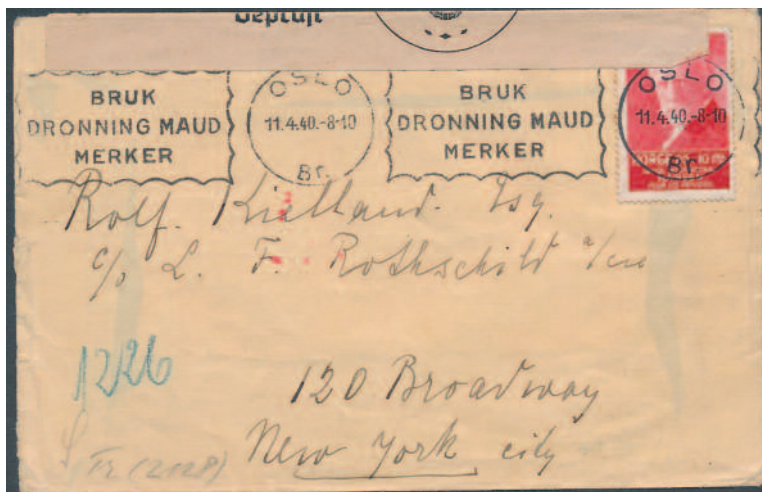 Geprüft
BRUK
DRONNING MAUD
MERKER
OSLO
11.4.40.-8-10
Br.
BRUK
DRONNING MAUD
MERKER
OSLO
11.4.40.-8-10
Br.
Rolf. Kielland. Esq.
c/o L. F. Rothschild &
120 Broadway
New York city
1226